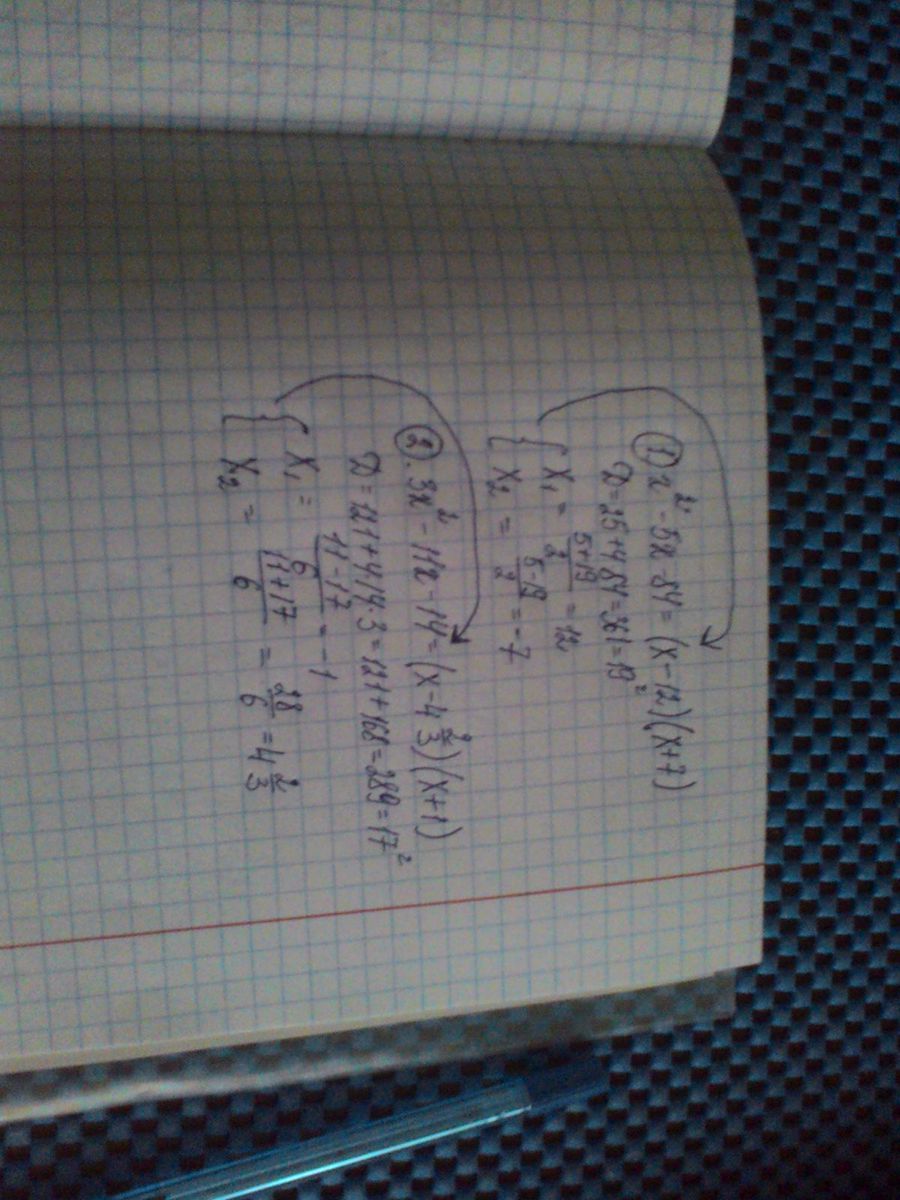 ① x² - 5x - 84 = (x - 12)(x + 7)
D = 25 + 4·84 = 361 = 19²
x₁ = (5+19)/2 = 12
x₂ = (5-19)/2 = -7
②. 3x² - 11x - 14 = (x - 4 2/3)(x + 1)
D = 121 + 4·14·3 = 121 + 168 = 289 = 17²
x₁ = (11-17)/6 = -1
x₂ = (11+17)/6 = 28/6 = 4 2/3